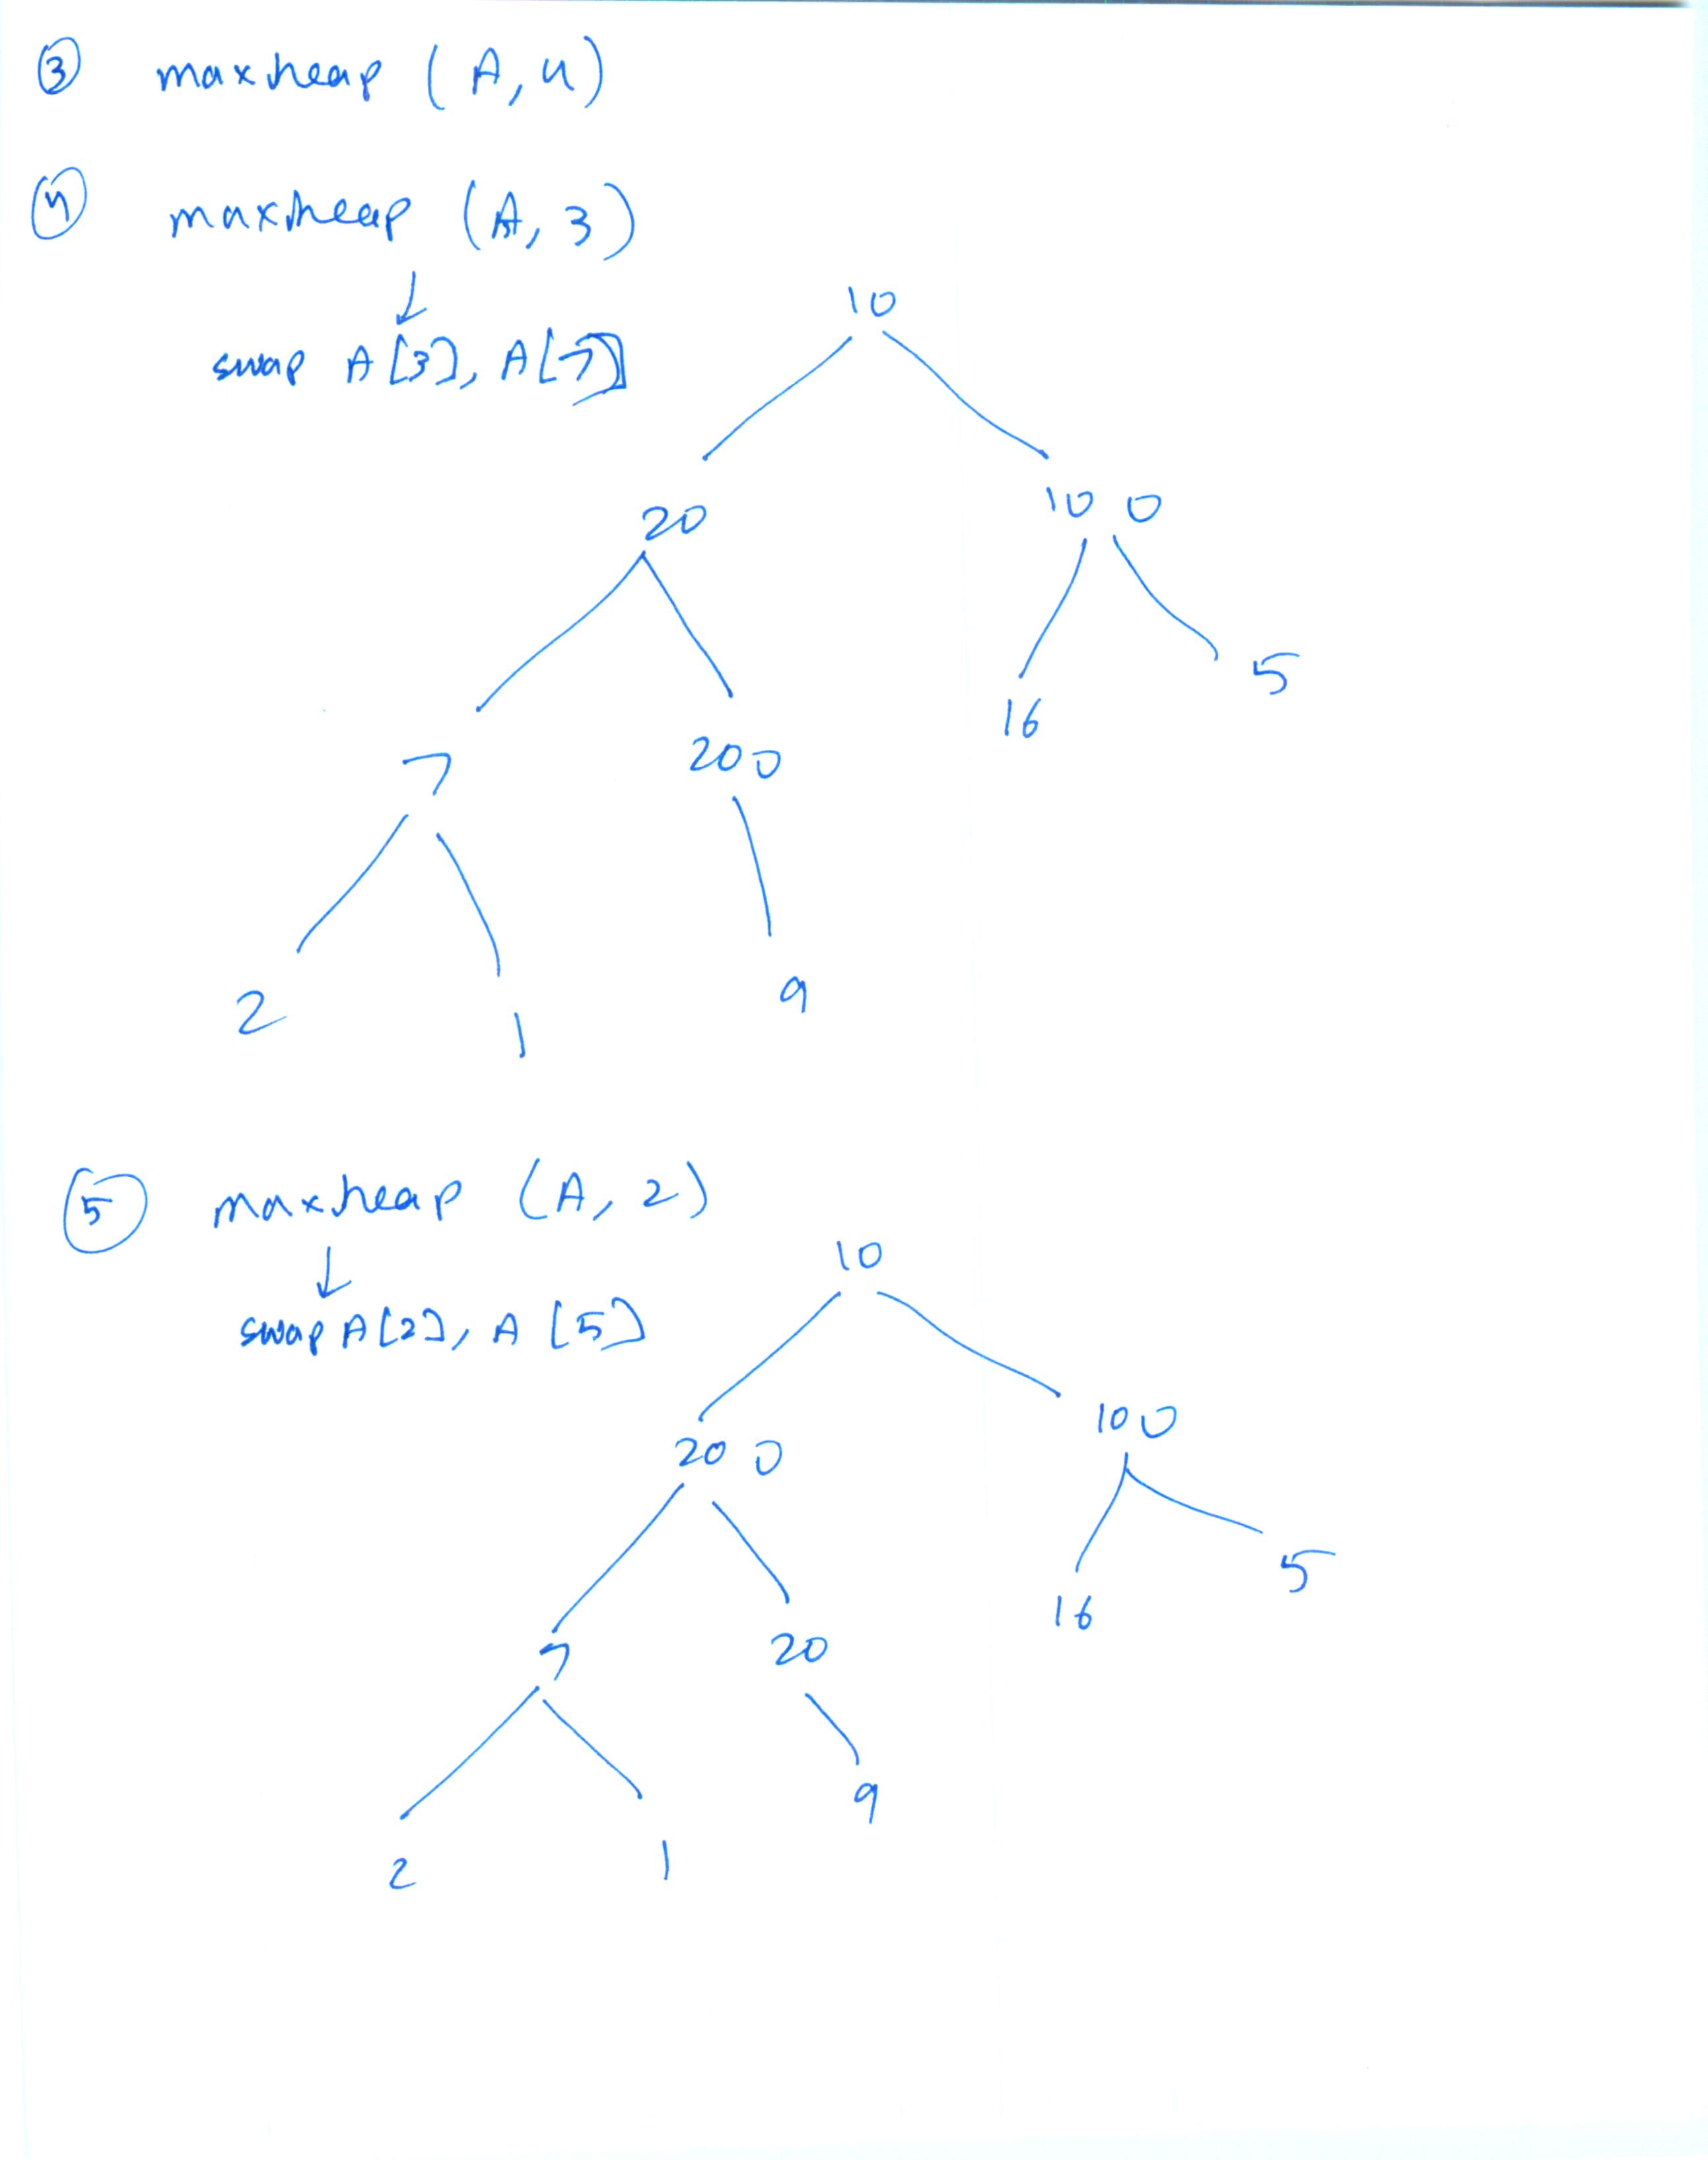 ③ maxheap (A, 4)
④ maxheap (A, 3)
↓
swap A[3], A[7]
10
20 100
7 200 16 5
2 1 9
⑤ maxheap (A, 2)
↓
swap A[2], A[5]
10
200 100
7 20 16 5
2 1 9